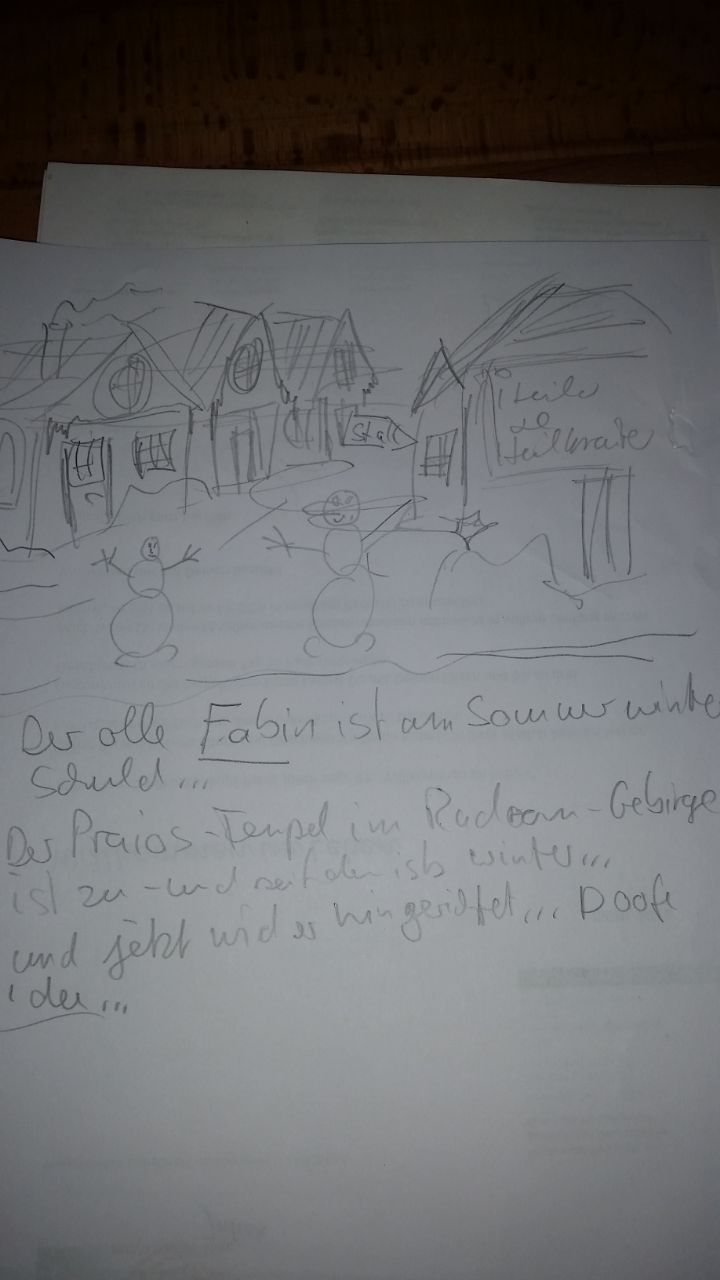 Stall
Der olle Fabin ist am Sommerwinter
Schuld...
Der Praios-Tempel im Gebirge
ist zu - und seitdem ists winter...
und jetzt wird er hingerichtet... Doofe
idee...